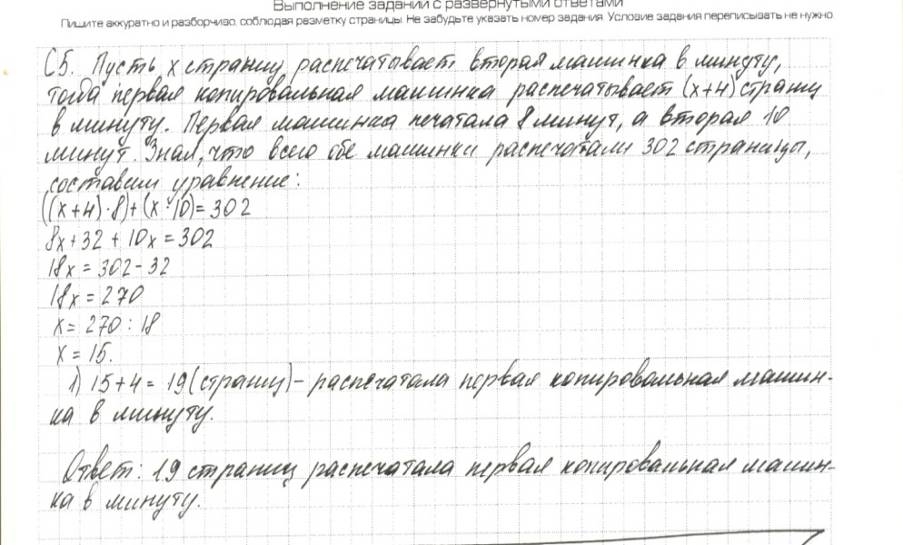 Выполнение заданий с развернутыми ответами
Пишите аккуратно и разборчиво, соблюдая разметку страницы. Не забудьте указать номер задания. Условие задания переписывать не нужно
C5. Пусть х страниц распечатывает вторая машинка в минуту,
тогда первая копировальная машинка распечатывает (х+4) страниц
в минуту. Первая машинка печатала 8 минут, а вторая 10
минут. Зная, что всего обе машинки распечатали 302 страницы,
составим уравнение:
((х+4)·8)+(х·10)=302
8х+32+10х=302
18х=302-32
18х=270
х=270:18
х=15.
1) 15+4=19 (страниц) - распечатала первая копировальная машин-
ка в минуту.
Ответ: 19 страниц распечатала первая копировальная машин-
ка в минуту.